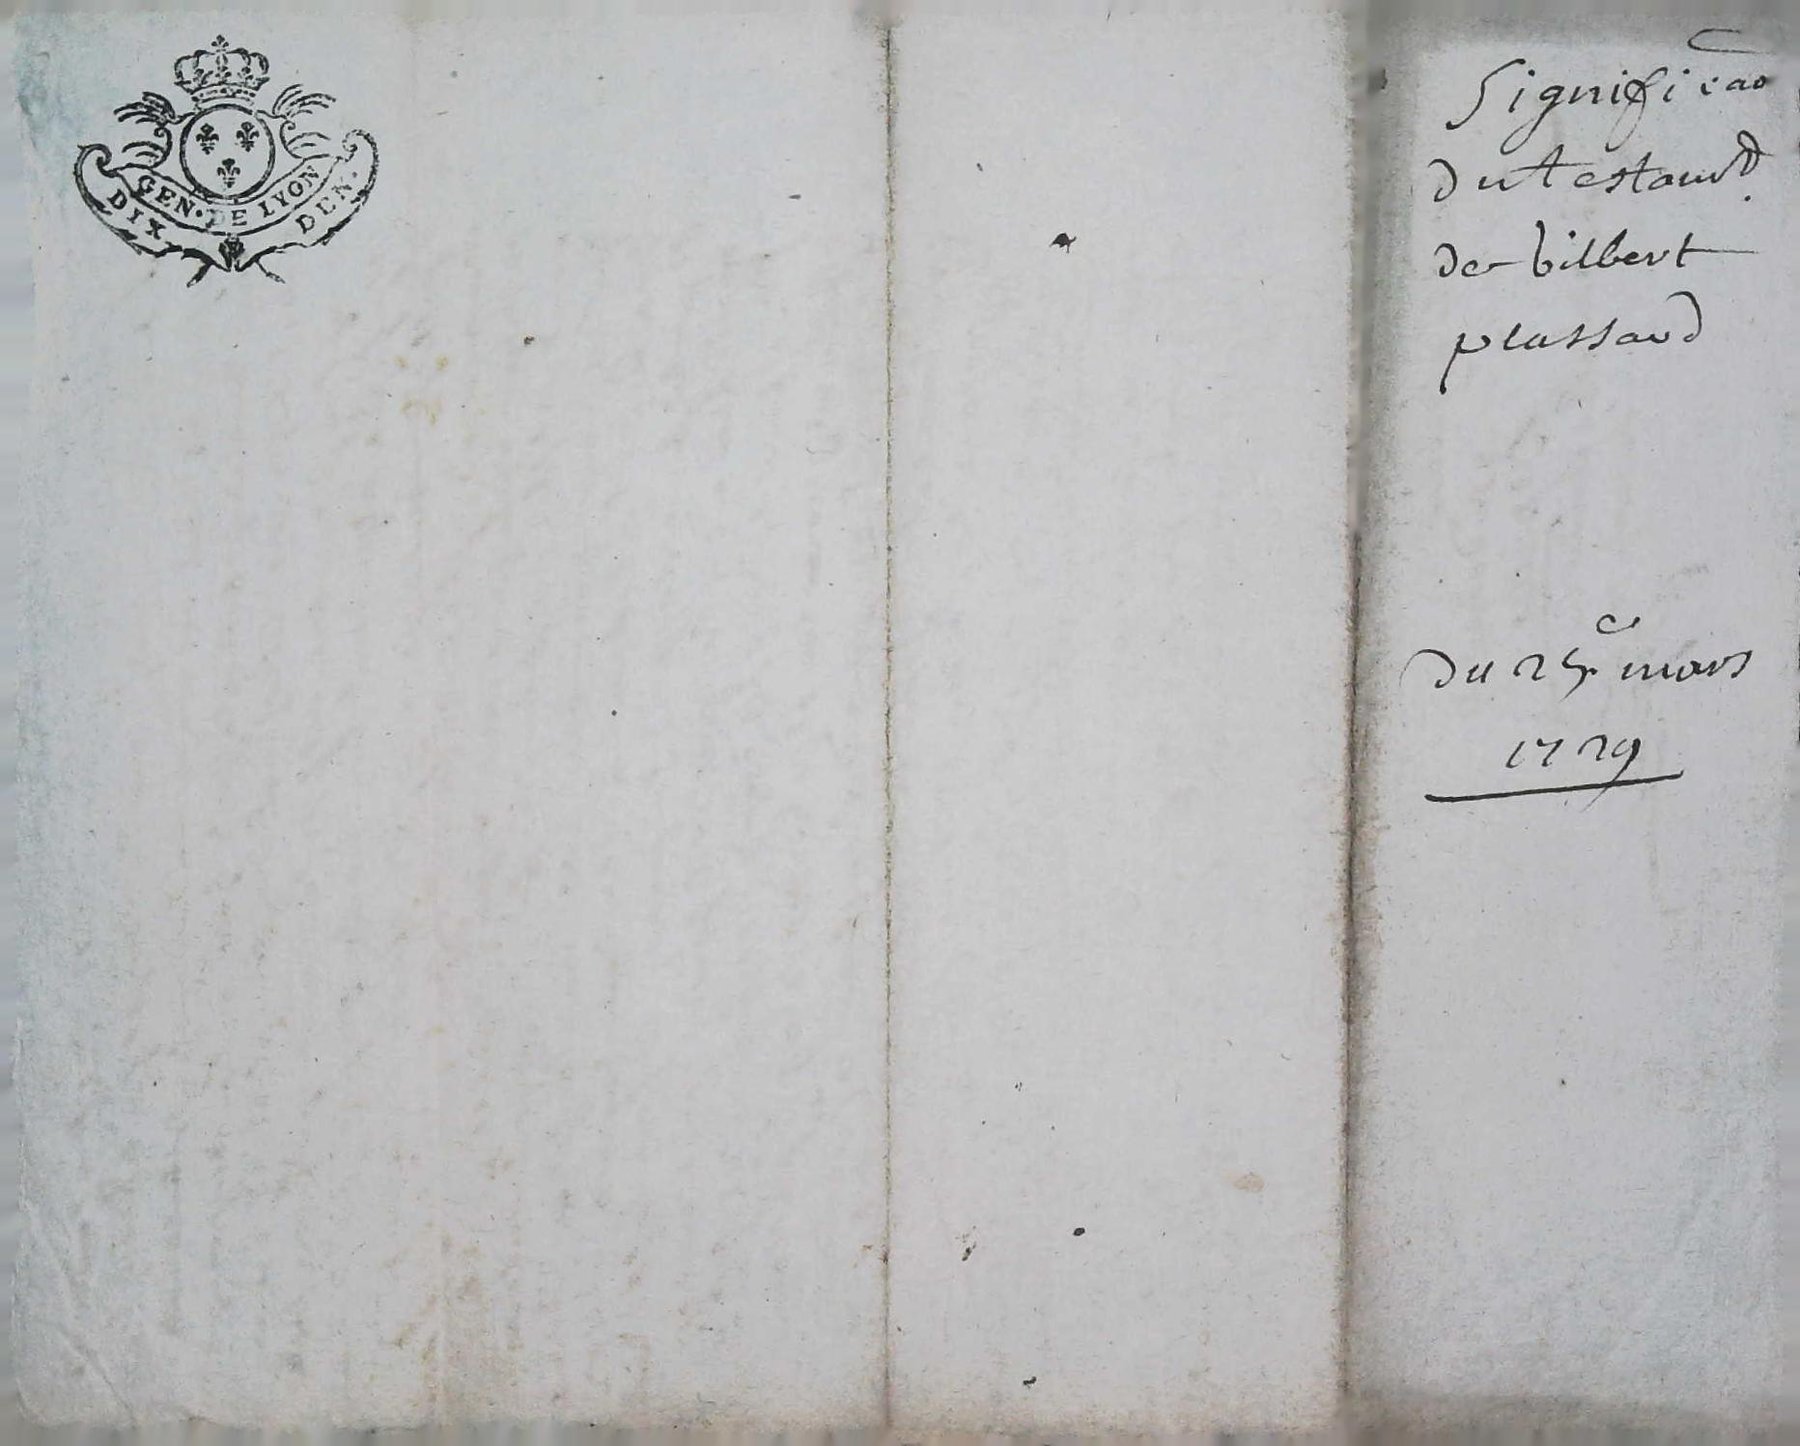 GEN. DE LYON
DIX DEN.
Significao
du testamt.
de Gilbert
plassard
du 25e mars
1729